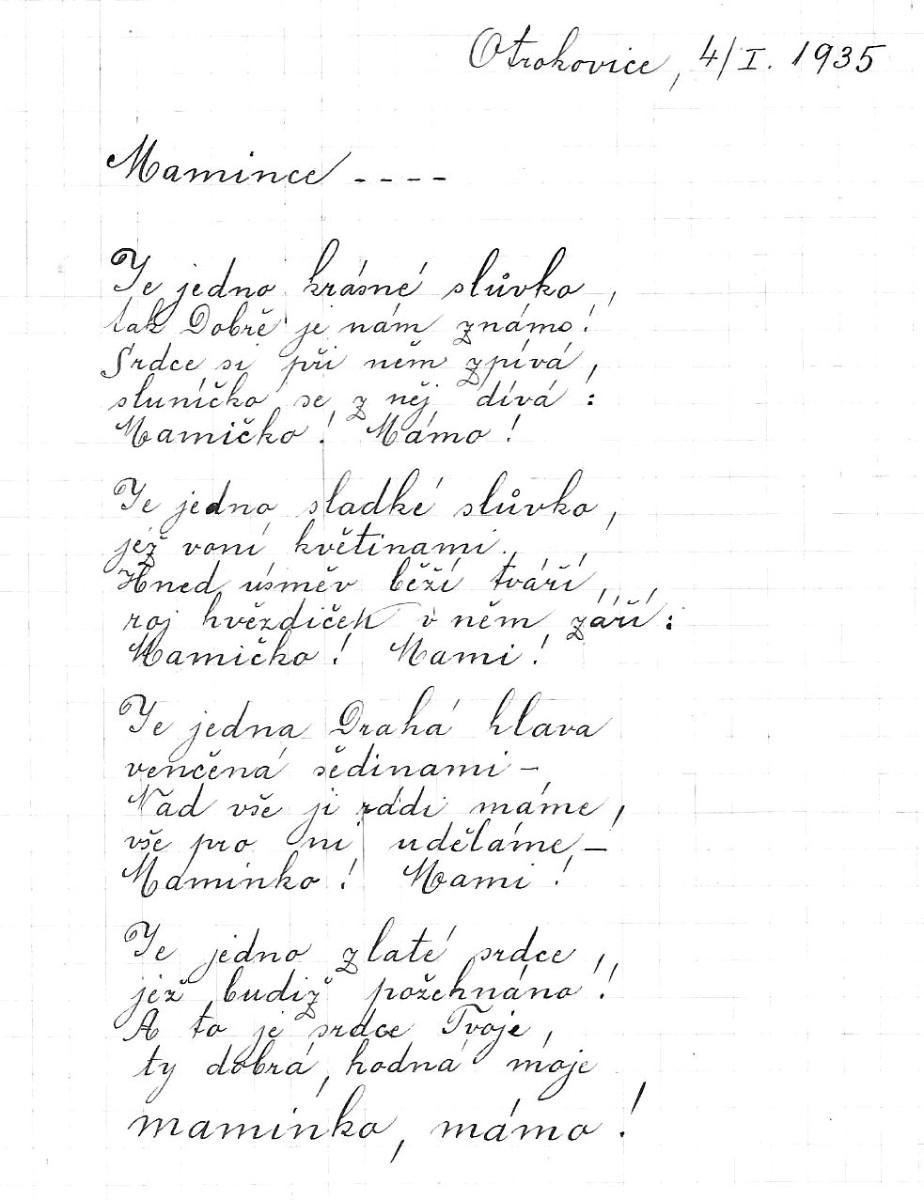 Otrokovice, 4/I. 1935
Mamince ----
Je jedno krásné slůvko,
tak Dobře je nám známo!
Srdce si při něm zpívá,
sluníčko se z něj dívá:
Mamičko! Mámo!
Je jedno sladké slůvko,
jež voní květinami.
Hned úsměv běží tváří,
roj hvězdiček v něm září:
Mamičko! Mami!
Je jedna Drahá hlava
věnčená šědinami –
Nad vše ji rádi máme,
vše pro ni uděláme –
Maminko! Mami!
Je jedno zlaté srdce,
jež budiž požehnáno!
A to je srdce Tvoje,
ty dobrá, hodná moje
maminko, mámo!